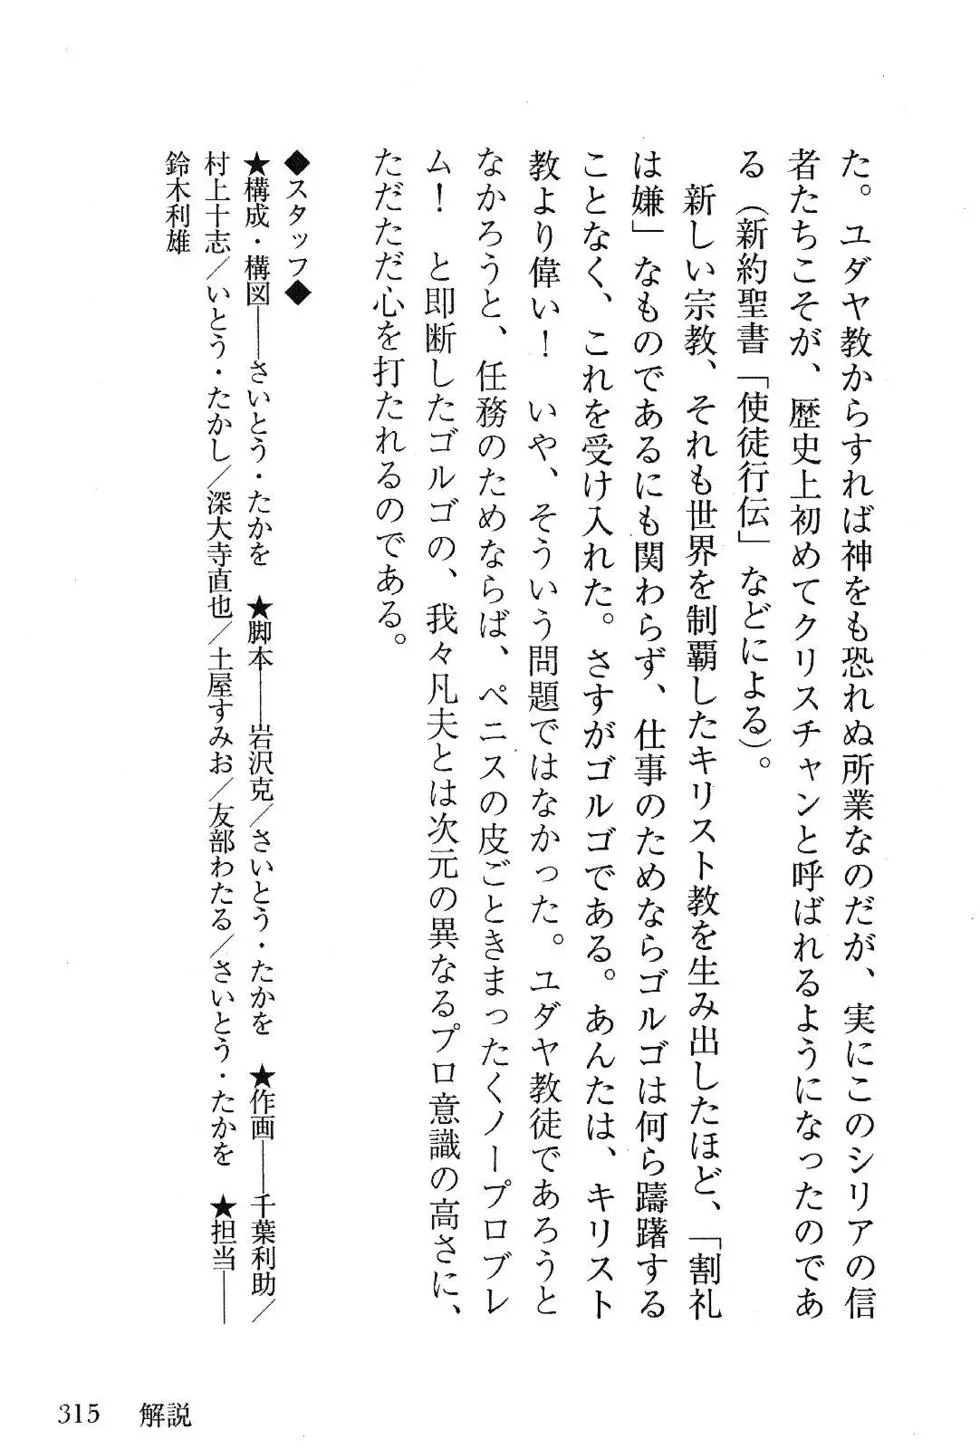 た。ユダヤ教からすれば神をも恐れぬ所業なのだが、実にこのシリアの信
者たちこそが、歴史上初めてクリスチャンと呼ばれるようになったのであ
る（新約聖書「使徒行伝」などによる）。
新しい宗教、それも世界を制覇したキリスト教を生み出したほど、「割礼
は嫌」なものであるにも関わらず、仕事のためならゴルゴは何ら躊躇する
ことなく、これを受け入れた。さすがゴルゴである。あんたは、キリスト
教より偉い！　いや、そういう問題ではなかった。ユダヤ教徒であろうと
なかろうと、任務のためならば、ペニスの皮ごときまったくノープロブレ
ム！　と即断したゴルゴの、我々凡夫とは次元の異なるプロ意識の高さに、
ただただ心を打たれるのである。
◆スタッフ◆
★構成・構図――さいとう・たかを　★脚本――岩沢克／さいとう・たかを　★作画――千葉利助／
村上十志／いとう・たかし／深大寺直也／土屋すみお／友部わたる／さいとう・たかを　★担当――
鈴木利雄
315　解説